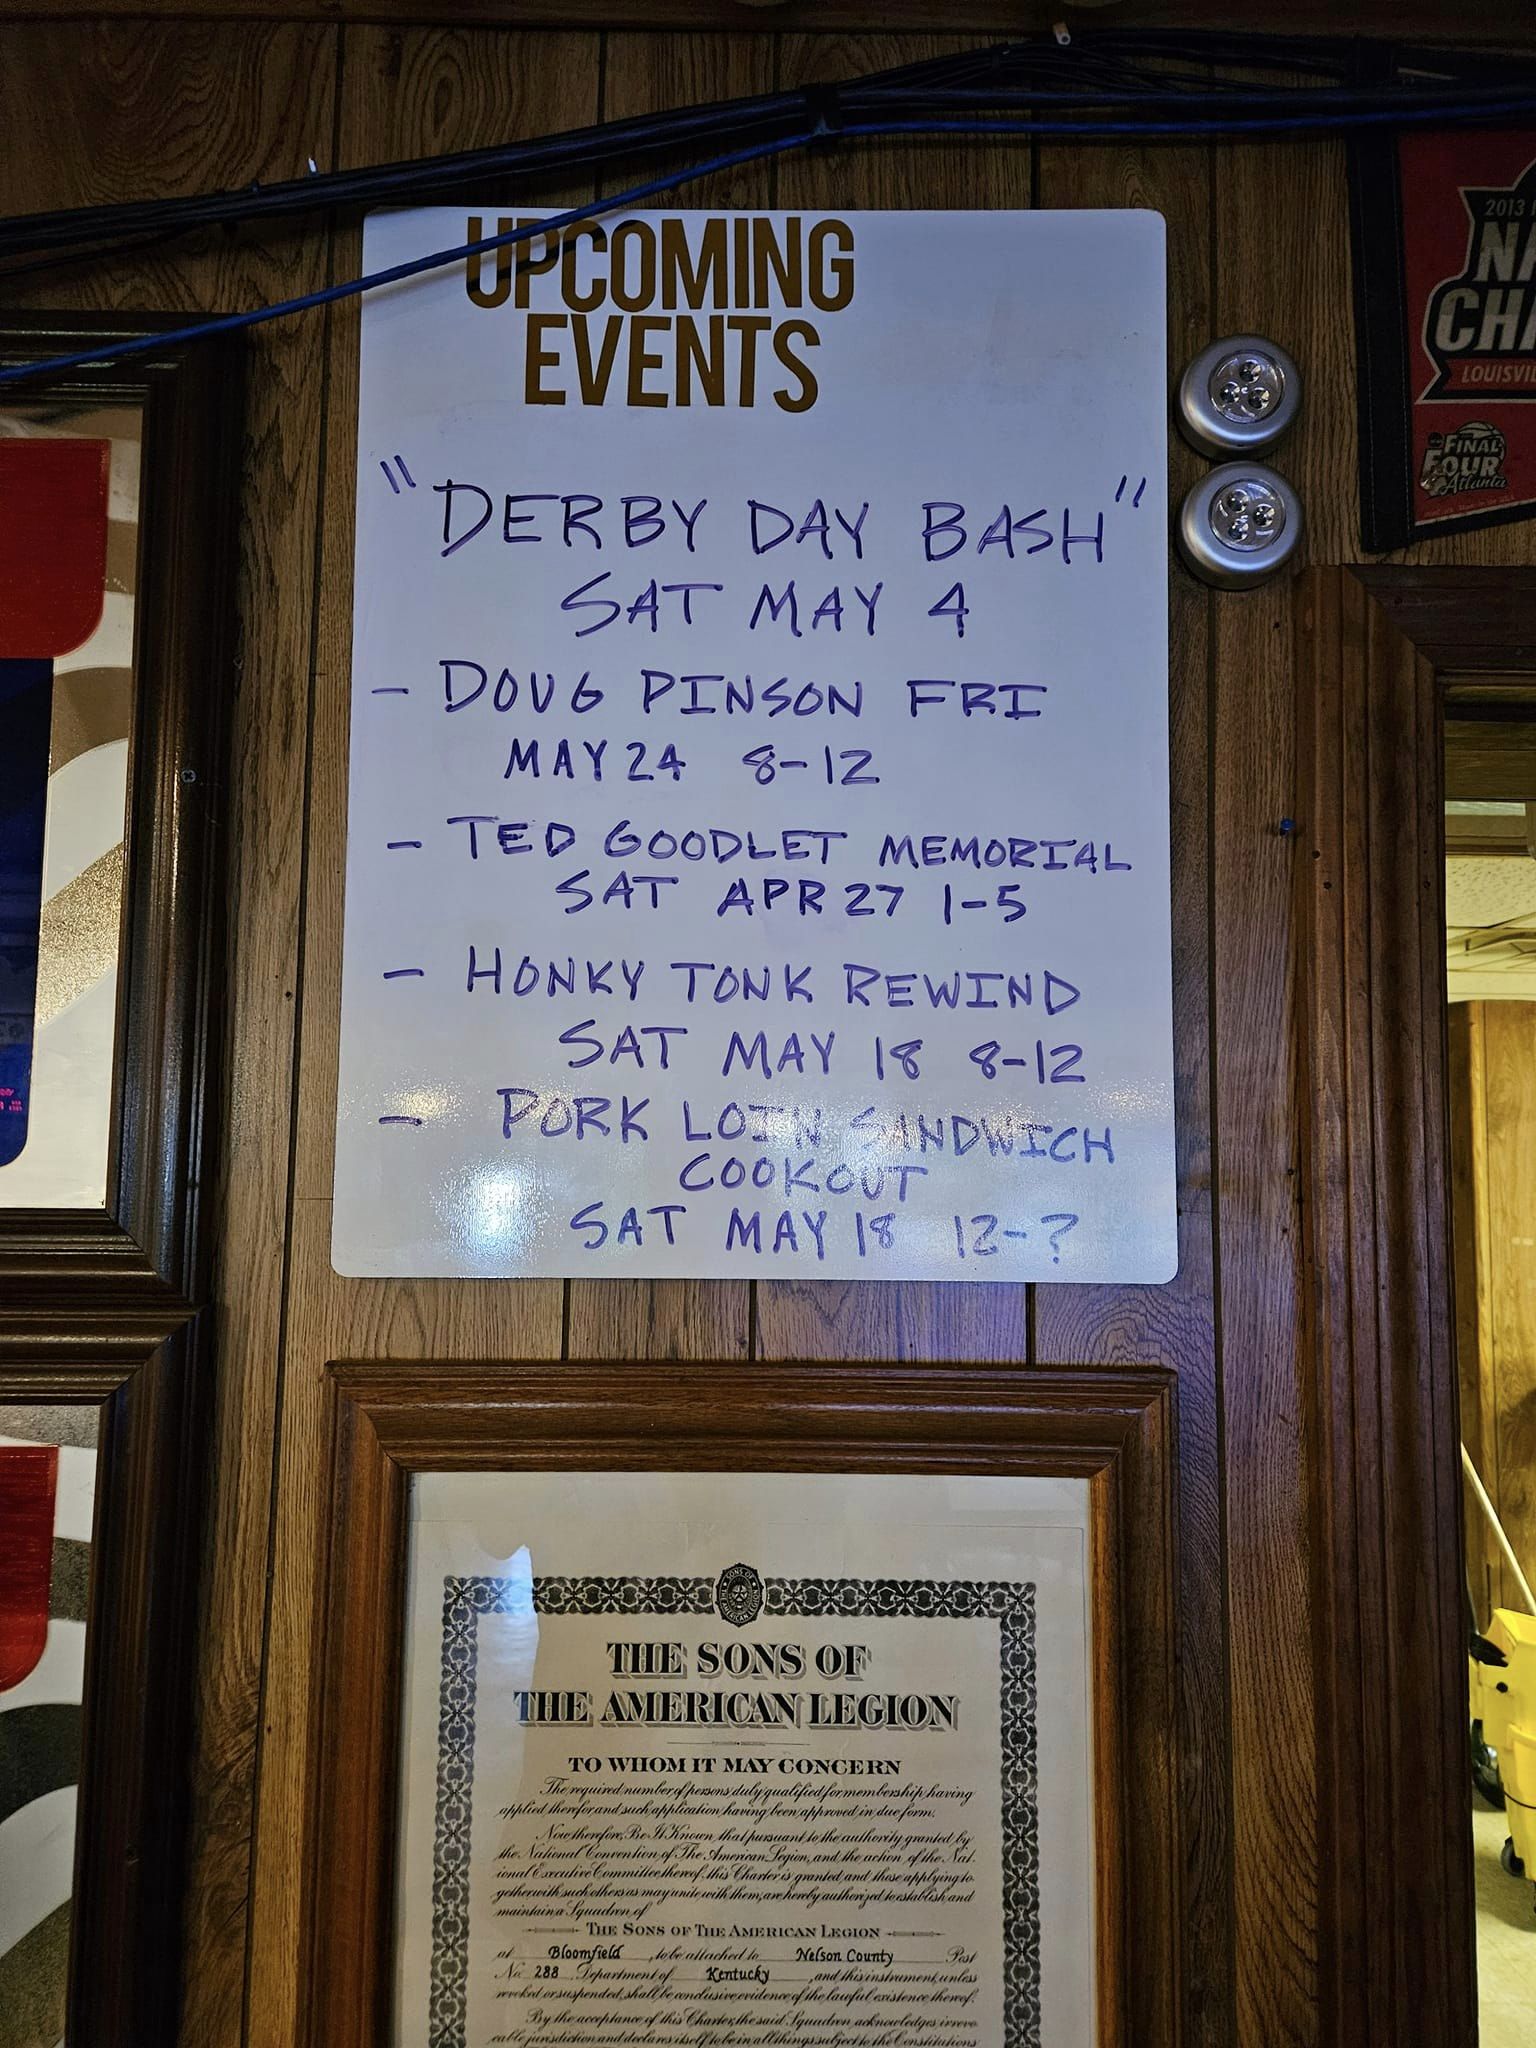 UPCOMING
EVENTS
"DERBY DAY BASH"
SAT MAY 4
- DOUG PINSON FRI
MAY 24 8-12
- TED GOODLET MEMORIAL
SAT APR 27 1-5
- HONKY TONK REWIND
SAT MAY 18 8-12
- PORK LOIN SANDWICH
COOKOUT
SAT MAY 18 12-?
2013
NA
CHA
LOUISVIL
FINAL
FOUR
Atlanta
THE SONS OF
THE AMERICAN LEGION
TO WHOM IT MAY CONCERN
The required number of persons duly qualified for membership having
applied therefor and such application having been approved in due form.
Now therefore, Be It Known, that pursuant to the authority granted by
the National Convention of The American Legion, and the action of the Nat-
ional Executive Committee thereof, this Charter is granted, and those applying to-
gether with such others as may unite with them, are hereby authorized to establish and
maintain a Squadron of
THE SONS OF THE AMERICAN LEGION
at Bloomfield, to be attached to Nelson County Post
No. 288 Department of Kentucky, and this instrument, unless
revoked or suspended, shall be conclusive evidence of the lawful existence thereof.
By the acceptance of this Charter, the said Squadron acknowledges irrevo-
cable jurisdiction and declares itself to be in all things subject to the Constitutions